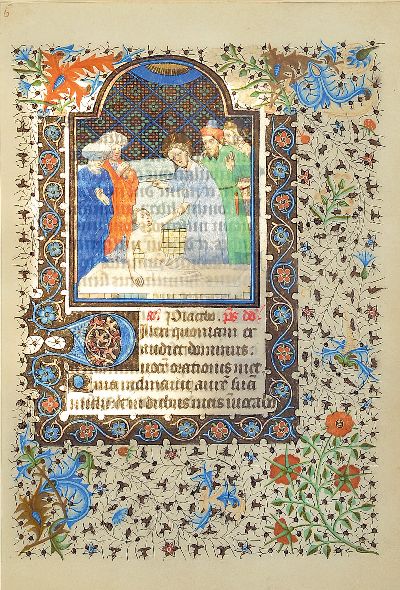 6
Placebo. ps dd.
Dilexi quoniam ex
audiet dominus:
uocem orationis mee
Quia inclinauit aurē suā
michi et in diebus meis inuocabo